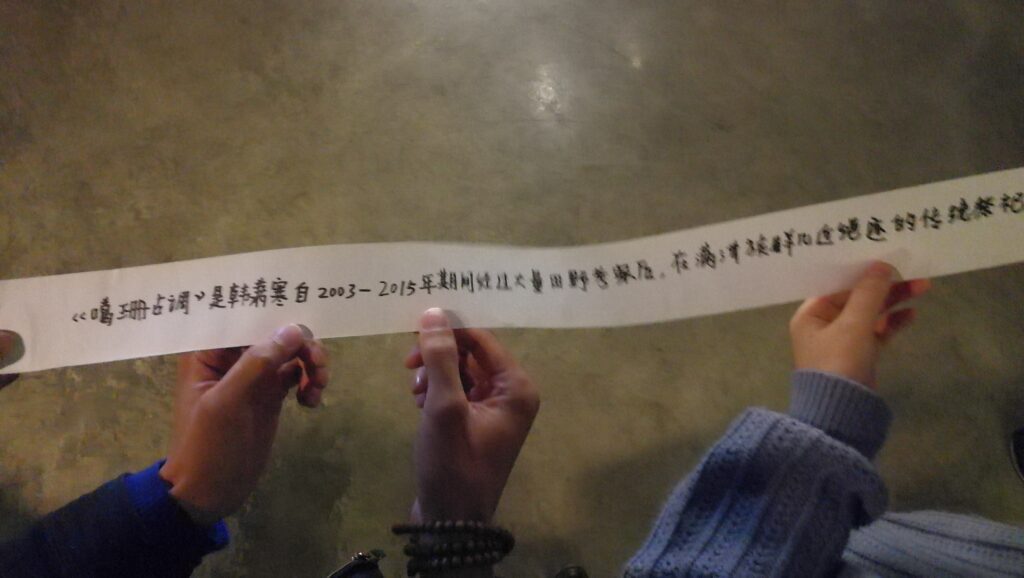 《噶珊占调》是韩萧寒自2003-2015年期间经过大量田野考察后,在满洲族群几近绝迹的传统祭祀